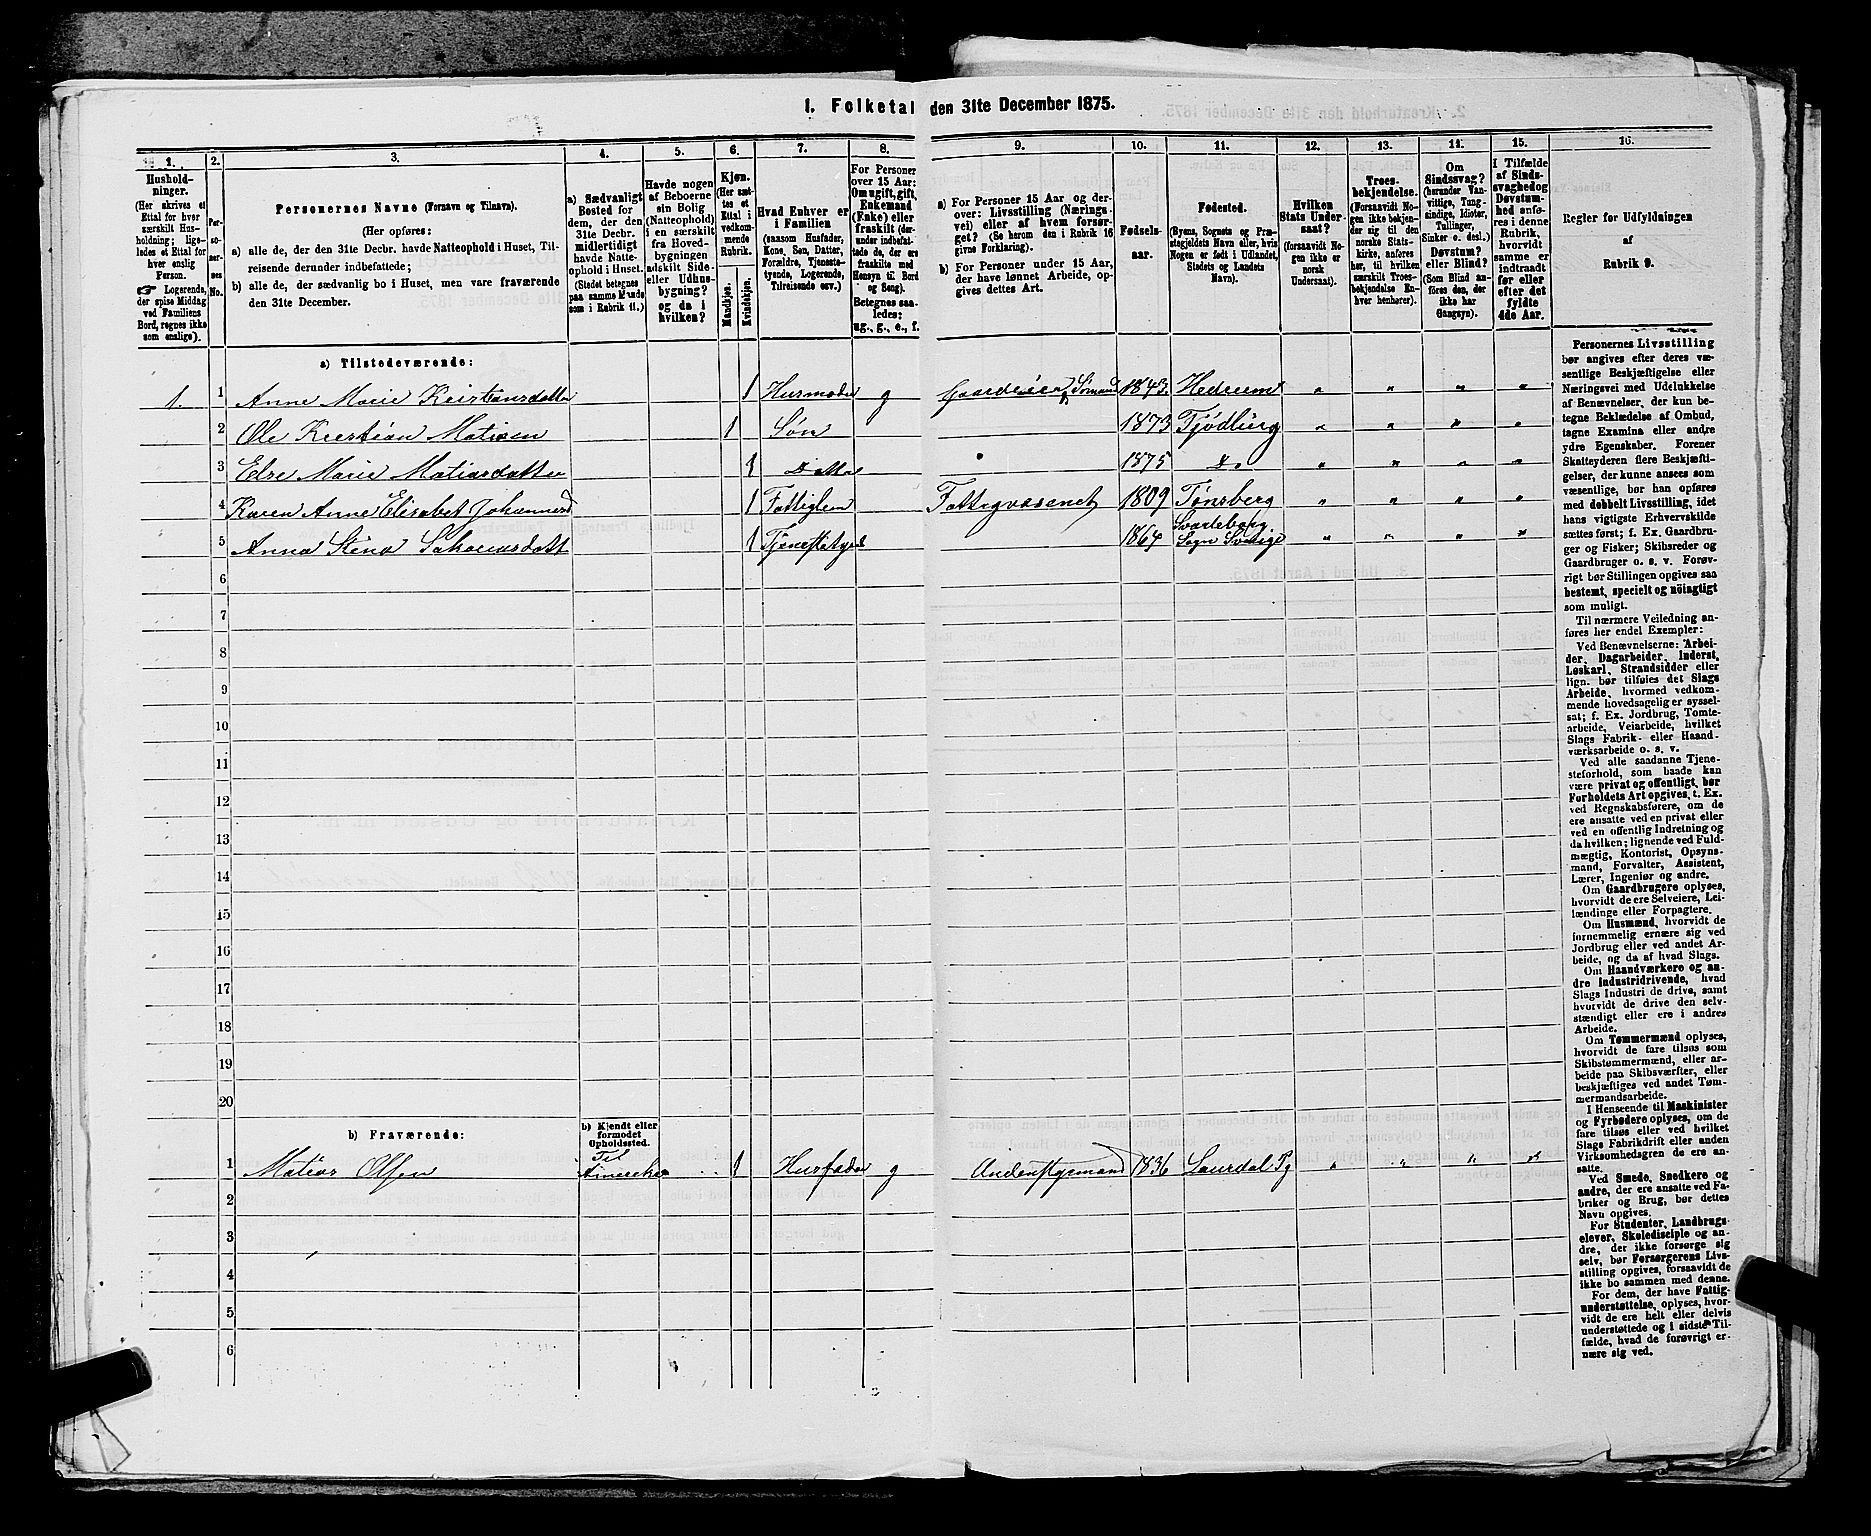 1. Folketal den 31te December 1875.
1. 2. 3. 4. 5. 6. 7. 8. 9. 10. 11. 12. 13. 14. 15. 16.
Hushold-
ninger.
(Her skrives et
Ettal for hver
særskilt Hus-
holdning; lige-
ledes et Ettal for
hver enslig
Person.
☞ Logerende,
der spise Middag
ved Familiens
Bord, regnes ikke
som enslige).
Per-
so-
ner-
nes
No.
Personernes Navne (Fornavn og Tilnavn).
(Her opføres:
a) alle de, der den 31te Decbr. havde Natteophold i Huset, Til-
reisende derunder indbefattede;
b) alle de, der sædvanlig bo i Huset, men vare fraværende
den 31te December.
a) Sædvanligt
Bosted for
dem, der den
31te Decbr.
midlertidigt
havde Natte-
ophold i Huset.
(Stedet betegnes
paa samme Maade
som i Rubrik 11.)
Havde nogen
af Beboerne
sin Bolig
(Natteophold)
i en særskilt
fra Hoved-
bygningen
adskilt Side-
eller Udhus-
bygning?
og da i
hvilken?
Kjøn.
(Her sæt-
tes et
Ettal i
vedkom-
mende
Rubrik.
Mandkjøn.
Kvindekjøn.
Hvad Enhver er
i Familien
(saasom Husfader,
Kone, Søn, Datter,
Forældre, Tjeneste-
tyende, Logerende,
Tilreisende osv.)
For Personer
over 15 Aar:
Om ugift, gift,
Enkemand
(Enke) eller
fraskilt (der-
under indbefat-
tede de, der ere
fraskilte med
Hensyn til Bord
og Seng).
Betegnes saa-
ledes;
ug., g., e., f.
a) For Personer 15 Aar og der-
over: Livsstilling (Nærings-
vei) eller af hvem forsør-
get? (Se herom den i Rubrik 16
givne Forklaring).
b) For Personer under 15 Aar,
der have lønnet Arbeide, op-
gives dettes Art.
Fødsels-
aar.
Fødested.
(Byens, Sognets og Præ-
stegjeldets Navn eller, hvis
Nogen er født i Udlandet,
Stedets og Landets
Navn).
Hvilken
Stats Under-
saat?
(forsaavidt No-
gen ikke er
norsk
Undersaat).
Troes-
bekjendelse.
(Forsaavidt No-
gen ikke bekjen-
der sig til den
norske Stats-
kirke, anføres
her, til hvilken
særskilt Troes-
bekjendelse En-
hver henhører).
Om
Sindssvag?
(herunder Van-
vittige, Tung-
sindige, Idioter,
Tullinger,
Sinker o. desl.)
Døvstum?
eller Blind?
(Som Blind an-
føres den, der
ikke har
Gangsyn).
I Tilfælde
af Sinds-
svaghed og
Døvstum-
hed anfø-
res i denne
Rubrik,
hvorvidt
samme er
indtraadt
før eller
efter det
fyldte
4de Aar.
Regler for Udfyldningen
af
Rubrik 9.
a) Tilstedeværende:
1. 1 Anne Marie Kristiansdatter 1 Husmoder g Gaardeier, Sømand 1843. Hedrum " " " "
2 Ole Kristian Matisen 1 Søn 1873 Tjødling " " " "
3 Else Marie Matiasdatter 1 Datter 1875 " " " "
4 Karen Anne Elisabet Johannesd 1 Fattiglem Fattigvæsenet 1809 Tønsberg " " " "
5 Anna Stina 1 Tjenestetyende 1864 Svarteborg Sogn Sverige " " " "
6
7
8
9
10
11
12
13
14
15
16
17
18
19
20
b) Fraværende:
b) Kjendt eller
formodet
Opholdssted.
1 Matias Olsen Til Amerika 1 Husfader g Andenstyrmand 1836 Laurdal Pg " " " "
2
3
4
5
6
Personernes Livsstilling
bør angives efter deres væ-
sentlige Beskjæftigelse eller
Næringsvei med Udelukkelse
af Benævnelser, der kun be-
tegne Beklædelse af Ombud,
tagne Examina eller andre
ydre Egenskaber. Forener
Skatteyderen flere Beskjæfti-
gelser, der kunne ansees som
væsentlige, bør han opføres
med dobbelt Livsstilling, idet
hans vigtigste Erhvervskilde
sættes først; f. Ex. Gaardbru-
ger og Fisker; Skibsreder og
Gaardbruger o. s. v. Forøv-
rigt bør Stillingen opgives saa
bestemt, specielt og nøiagtigt
som muligt.
Til nærmere Veiledning an-
føres her endel Exempler:
Ved Benævnelserne: Arbei-
der, Dagarbeider, Inderst,
Løskarl, Strandsidder eller
lign. bør tilføies det Slags
Arbeide, hvormed vedkom-
mende hovedsagelig er syssel-
sat; f. Ex. Jordbrug, Tomte-
arbeide, Veiarbeide, hvilket
Slags Fabrik- eller Haand-
værksarbeide o. s. v.
Ved alle saadanne Tjene-
steforhold, som baade kan
være privat og offentligt, bør
Forholdets Art opgives, t. Ex.
ved Regnskabsførere, om de
ere ansatte ved en privat eller
ved en offentlig Indretning og
da hvilken; lignende ved Fuld-
mægtig, Kontorist, Opsyns-
mand, Forvalter, Assistent,
Lærer, Ingeniør og andre.
Om Gaardbrugere oplyses,
hvorvidt de ere Selveiere, Lei-
lændinge eller Forpagtere.
Om Husmænd, hvorvidt de
fornemmelig ernære sig ved
Jordbrug eller ved andet Ar-
beide, og da af hvad Slags.
Om Haandværkere og an-
dre Industridrivende, hvad
Slags Industri de drive, samt
hvorvidt de drive den selv-
stændigt eller ere i andres
Arbeide.
Om Tømmermænd oplyses,
hvorvidt de fare tilsøs som
Skibstømmermænd, eller ar-
beide paa Skibsværfter, eller
beskjæftiges ved andet Tøm-
mermandsarbeide.
I Henseende til Maskinister
og Fyrbødere oplyses, om de
fare tilsøs eller ved hvilket
Slags Fabrikdrift eller anden
Virksomhedsgren de ere an-
satte.
Ved Smede, Snedkere og
andre, der ere ansatte ved Fa-
briker og Brug, bør dettes
Navn opgives.
For Studenter, Landbrugs-
elever, Skoledisciple og an-
dre, der ikke forsørge sig
selv, bør Forsørgerens Livs-
stilling opgives, forsaavidt de
ikke bo sammen med denne.
For dem, der have Fattig-
understøttelse, oplyses, hvor-
vidt de ere helt eller delvis
understøttede og i sidste Til-
fælde, hvad de forøvrigt er-
nære sig ved.